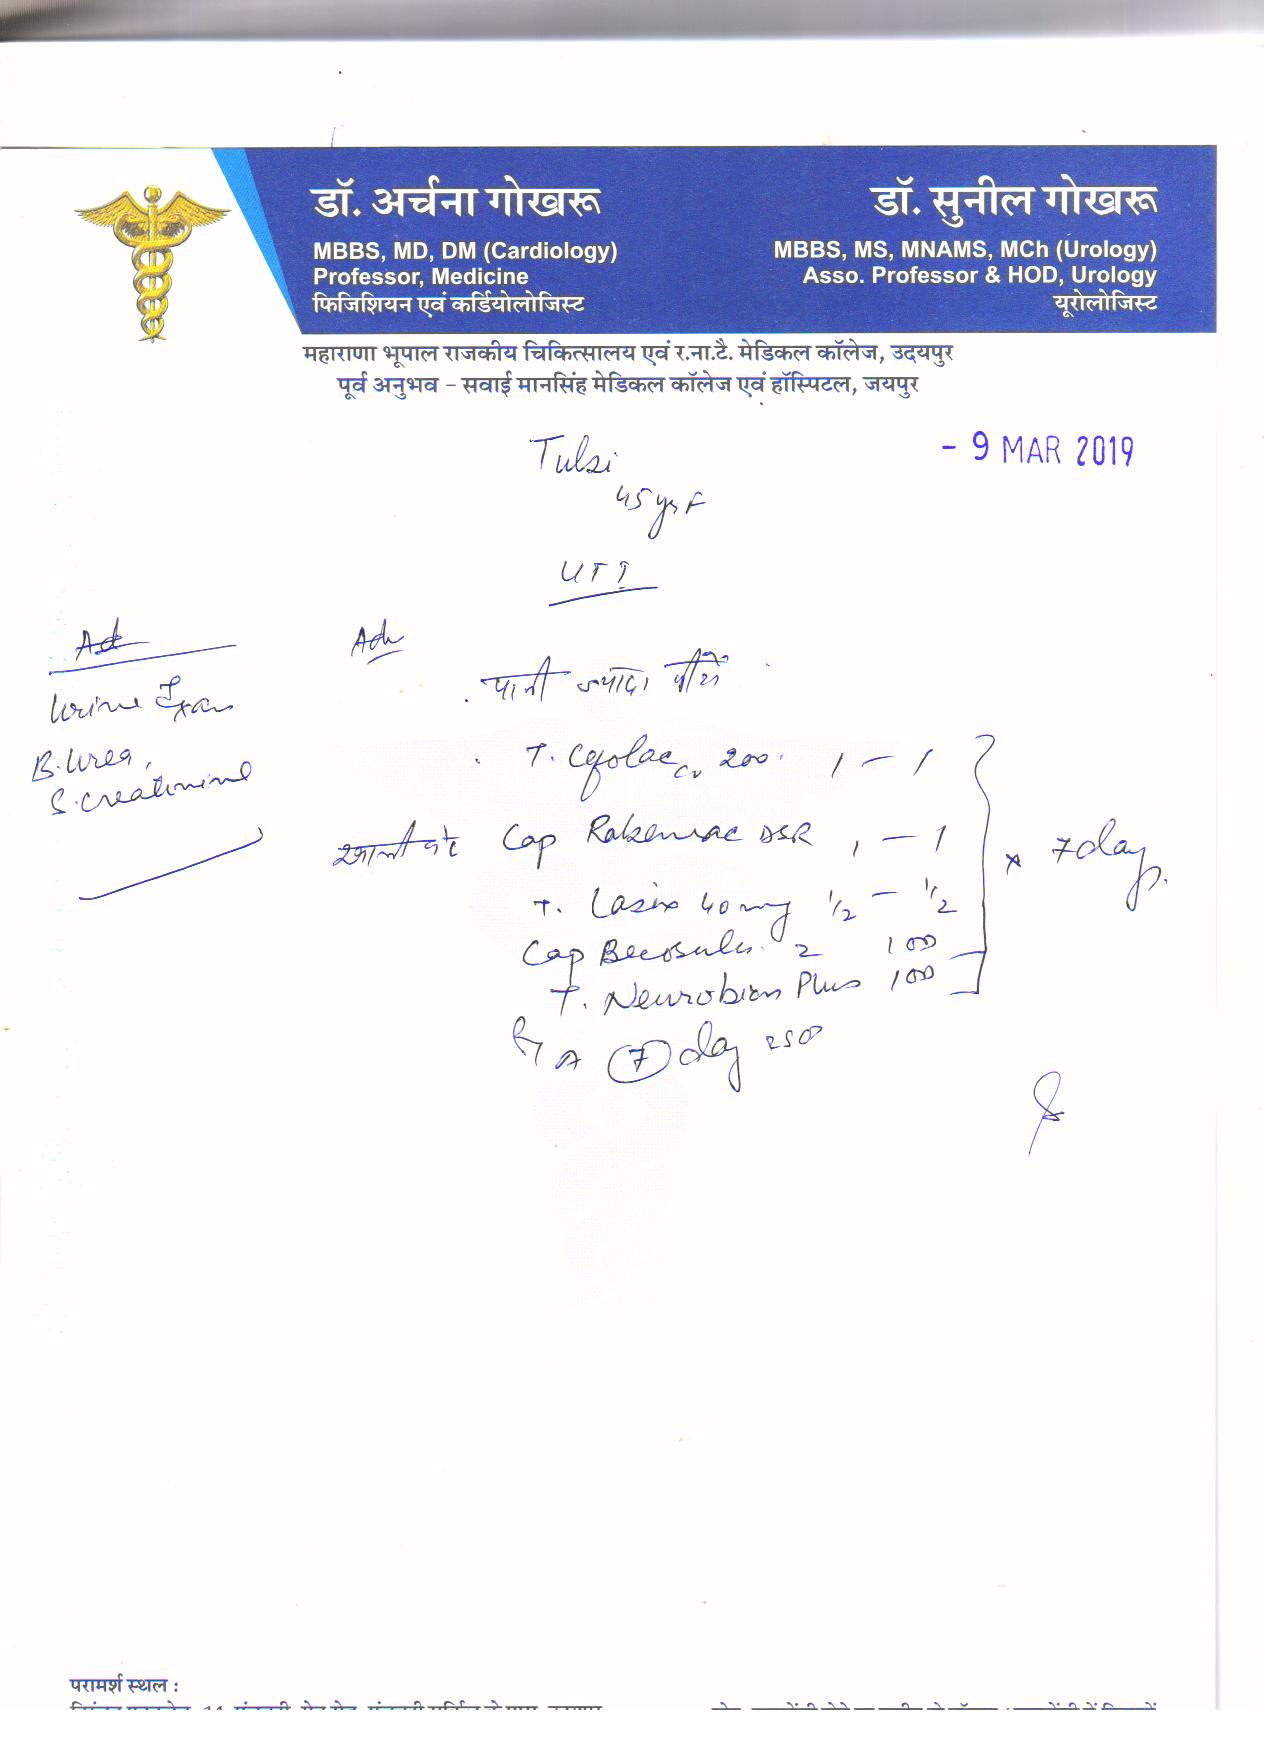 डॉ. अर्चना गोखरू
MBBS, MD, DM (Cardiology)
Professor, Medicine
फिजिशियन एवं कर्डियोलोजिस्ट
डॉ. सुनील गोखरू
MBBS, MS, MNAMS, MCh (Urology)
Asso. Professor & HOD, Urology
यूरोलोजिस्ट
महाराणा भूपाल राजकीय चिकित्सालय एवं र.ना.टै. मेडिकल कॉलेज, उदयपुर
पूर्व अनुभव – सवाई मानसिंह मेडिकल कॉलेज एवं हॉस्पिटल, जयपुर
- 9 MAR 2019
Tulsi
45 yrs F
UTI
Urine Exam
B. Urea,
S. creatinine
Adv
पानी ज्यादा पीयें
T. Cefolac CV 200 1 – 1
खाली पेट Cap DSR 1 – 1
T. Lasix 40 mg 1/2 – 1/2
Cap Becosules 2 100
T. Neurobion Plus 100
x 7 day
7 day
परामर्श स्थल :